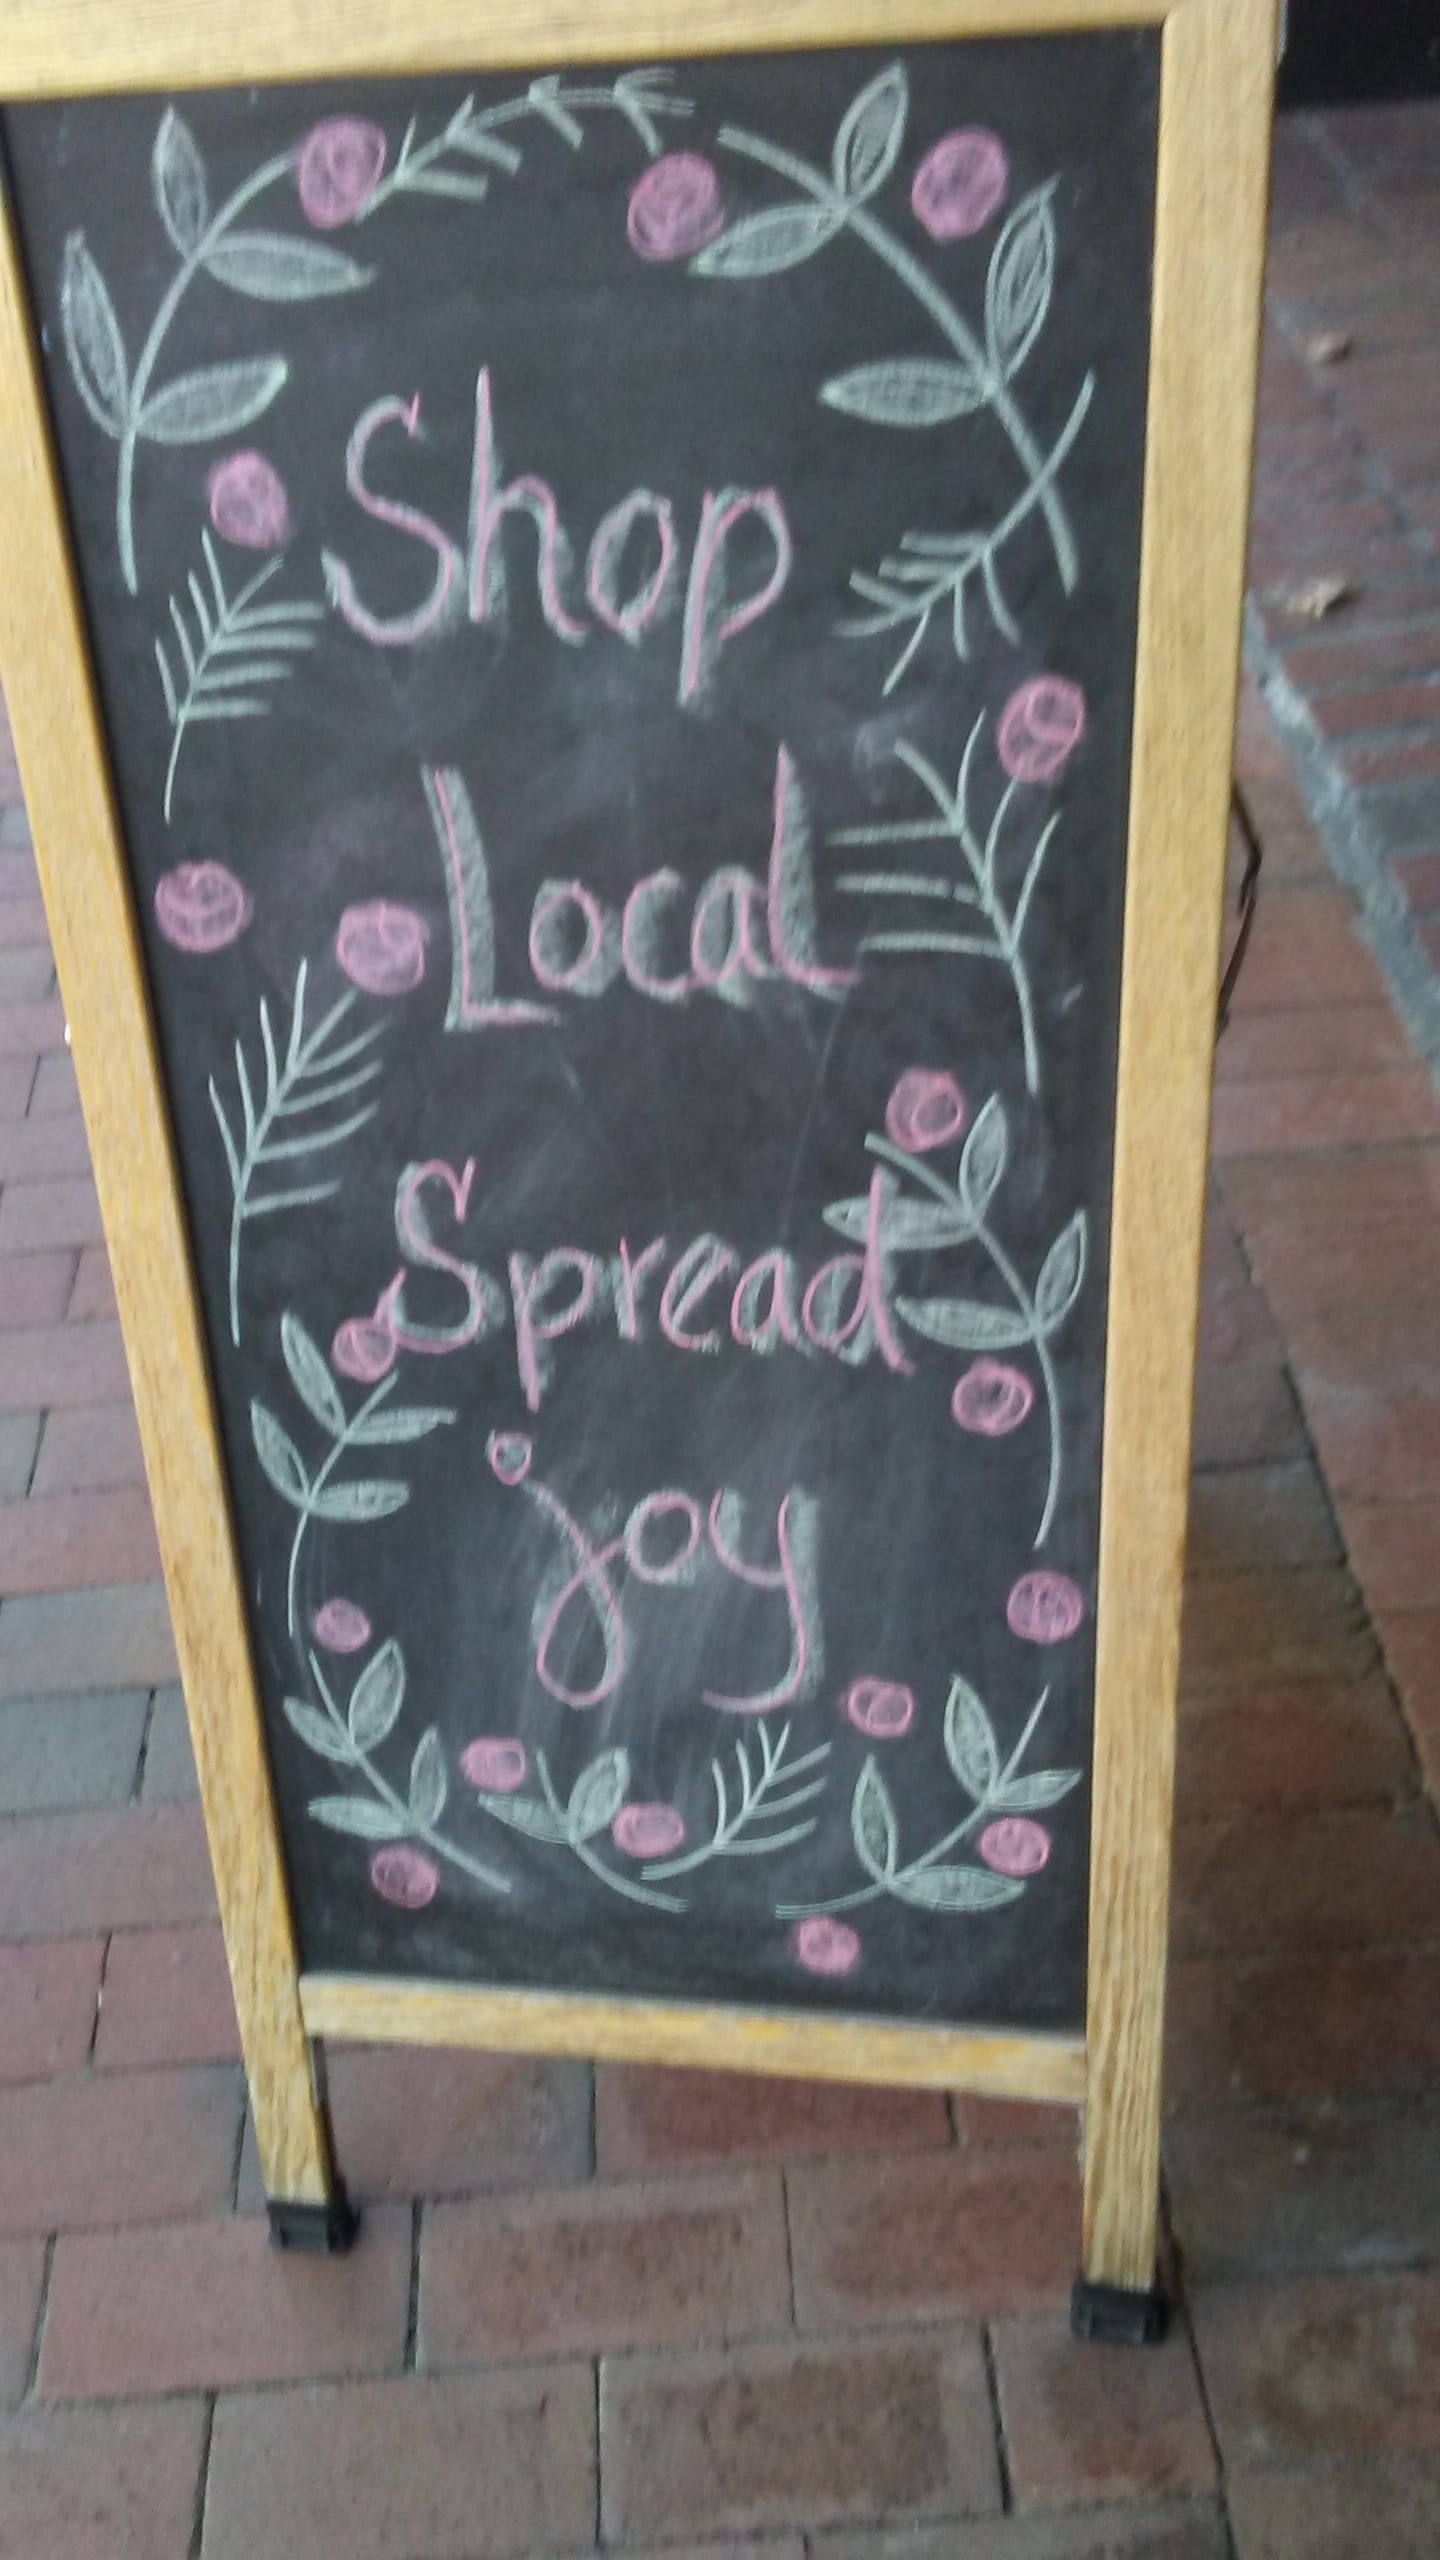 Shop
Local
Spread
joy